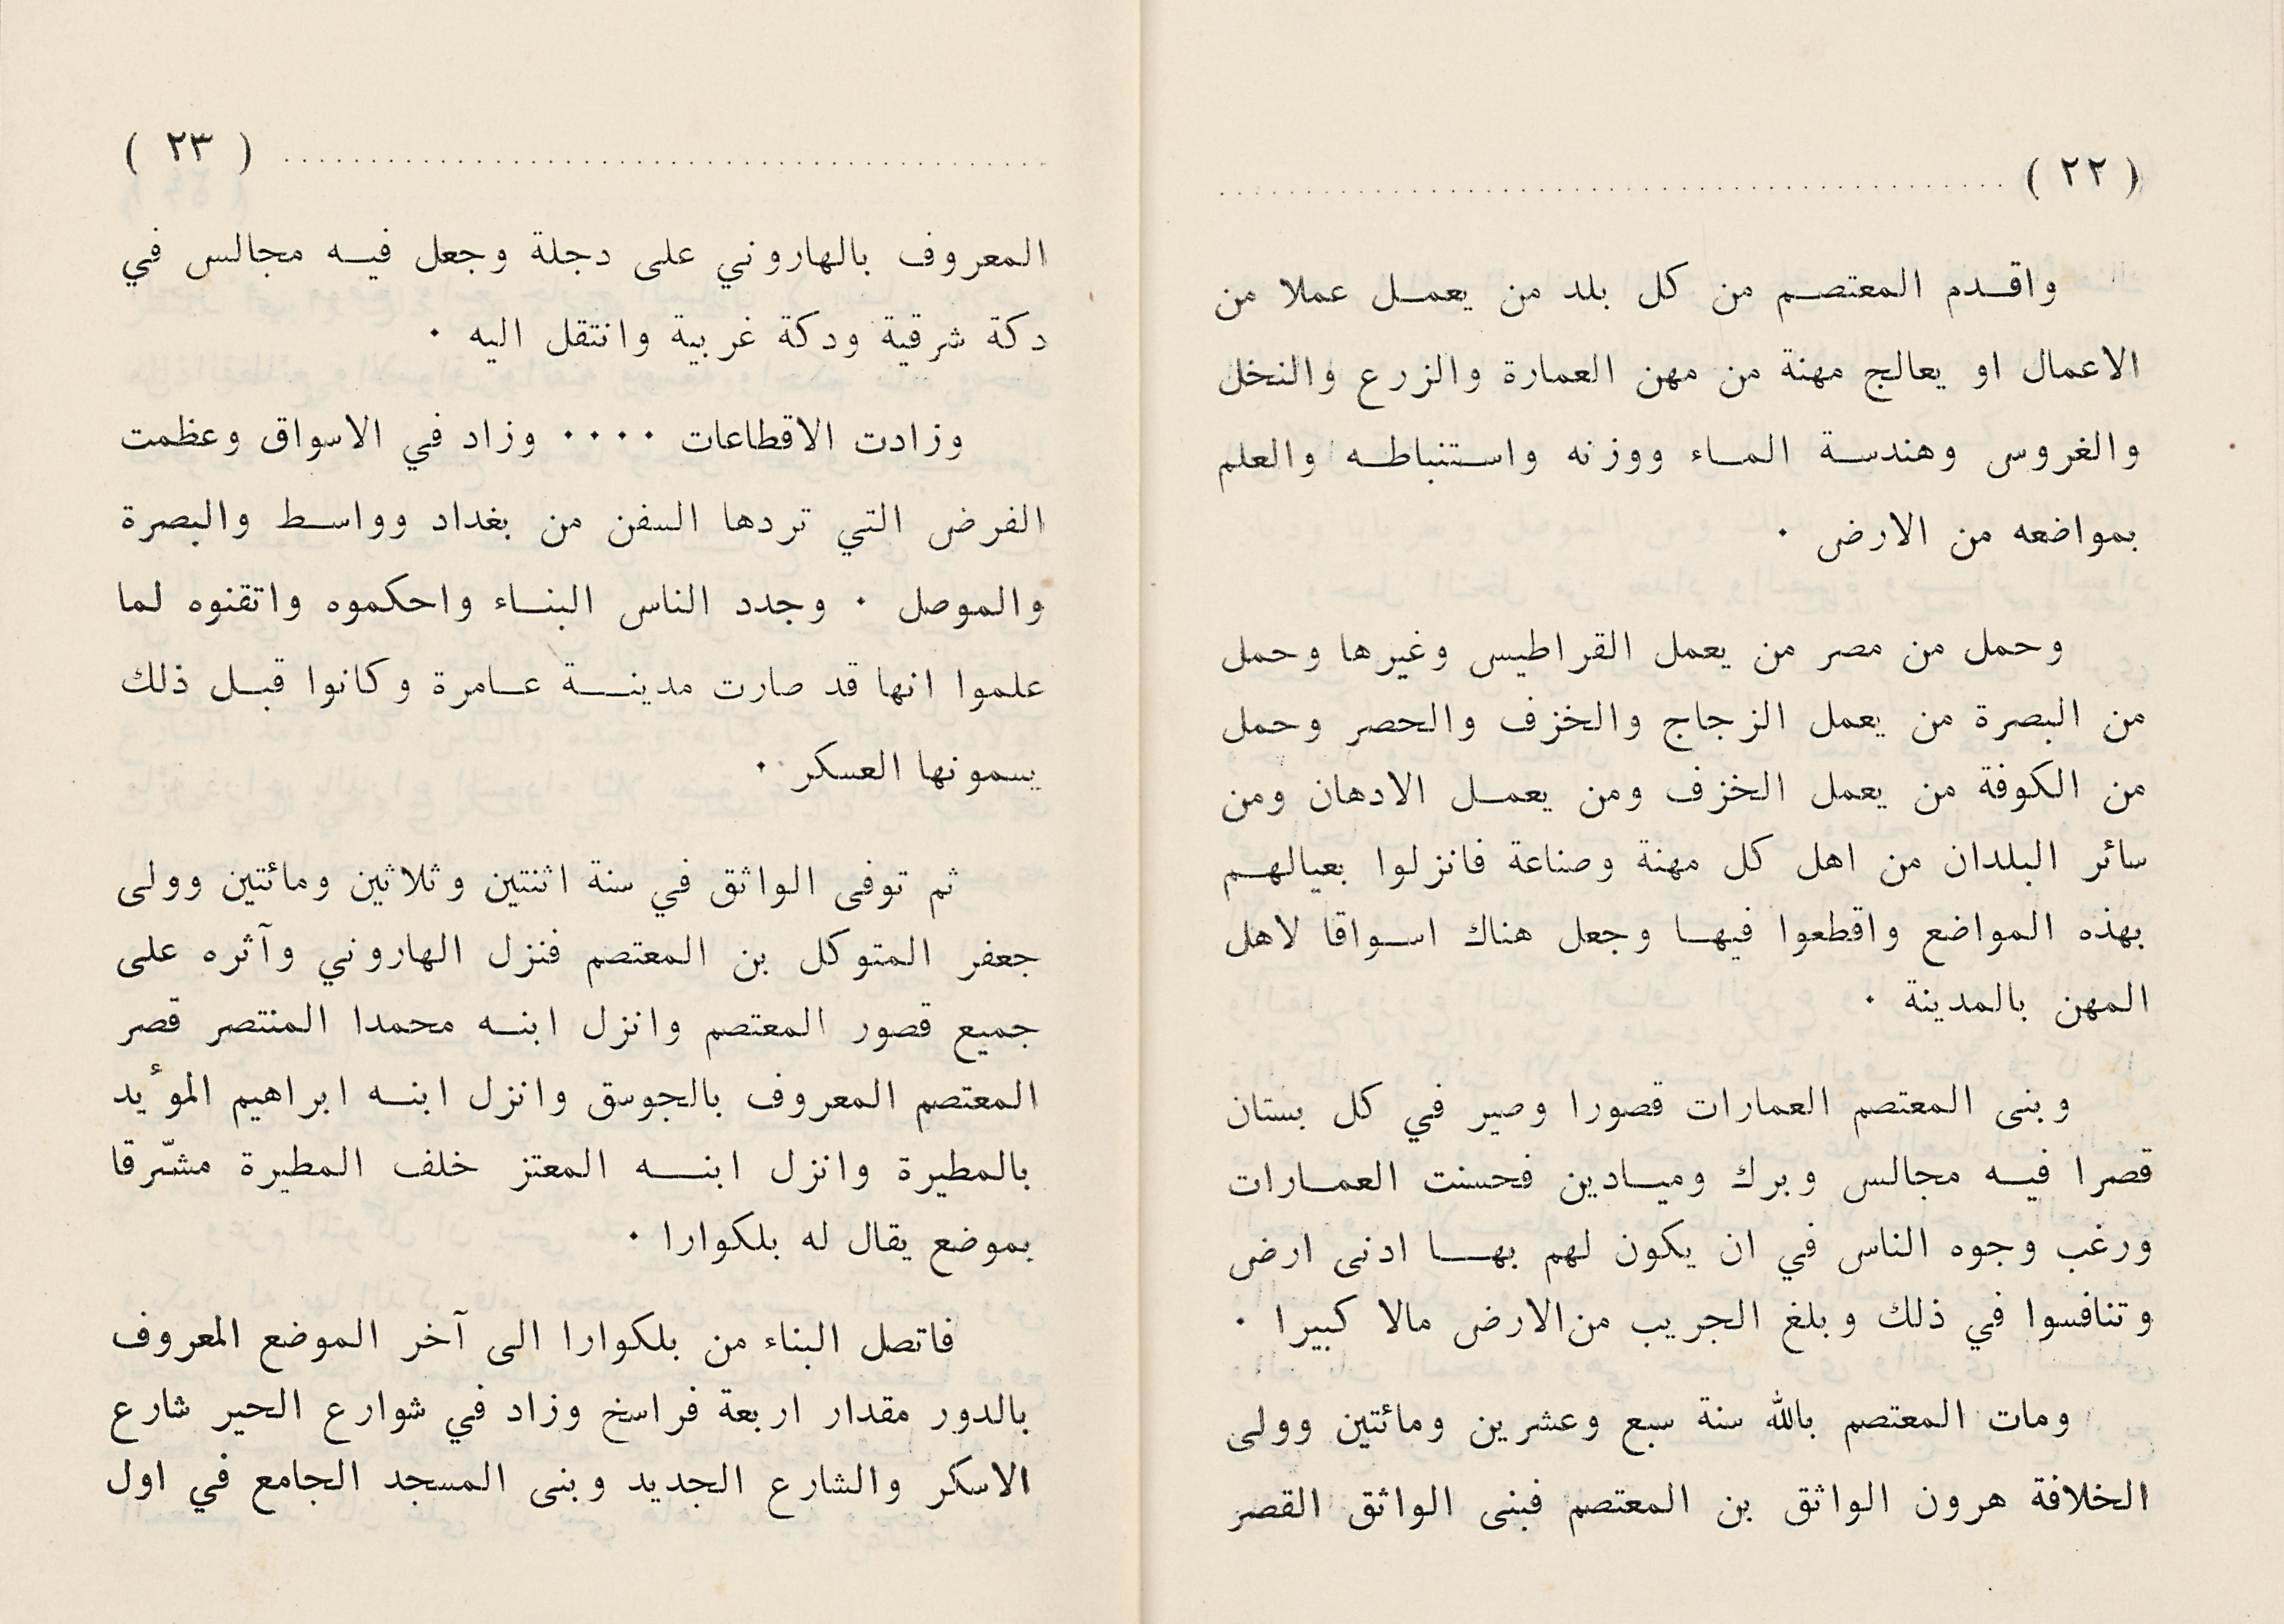 ( ٢٢ )
واقدم المعتصم من كل بلد من يعمل عملا من
الاعمال او يعالج مهنة من مهن العمارة والزرع والنخل
والغروس وهندسة الماء ووزنه واستنباطه والعلم
بمواضعه من الارض ٠
وحمل من مصر من يعمل القراطيس وغيرها وحمل
من البصرة من يعمل الزجاج والخزف والحصر وحمل
من الكوفة من يعمل الخزف ومن يعمل الادهان ومن
سائر البلدان من اهل كل مهنة وصناعة فانزلوا بعيالهم
بهذه المواضع واقطعوا فيها وجعل هناك اسواقا لاهل
المهن بالمدينة ٠
وبنى المعتصم العمارات قصورا وصير في كل بستان
قصرا فيه مجالس وبرك وميادين فحسنت العمارات
ورغب وجوه الناس في ان يكون لهم بها ادنى ارض
وتنافسوا في ذلك وبلغ الجريب من الارض مالا كبيرا ٠
ومات المعتصم بالله سنة سبع وعشرين ومائتين وولى
الخلافة هرون الواثق بن المعتصم فبنى الواثق القصر
( ٢٣ )
المعروف بالهاروني على دجلة وجعل فيه مجالس في
دكة شرقية ودكة غربية وانتقل اليه ٠
وزادت الاقطاعات ٠٠٠٠ وزاد في الاسواق وعظمت
الفرض التي تردها السفن من بغداد وواسط والبصرة
والموصل ٠ وجدد الناس البناء واحكموه واتقنوه لما
علموا انها قد صارت مدينة عامرة وكانوا قبل ذلك
يسمونها العسكر ٠
ثم توفى الواثق في سنة اثنتين وثلاثين ومائتين وولى
جعفر المتوكل بن المعتصم فنزل الهاروني وآثره على
جميع قصور المعتصم وانزل ابنه محمدا المنتصر قصر
المعتصم المعروف بالجوسق وانزل ابنه ابراهيم المؤيد
بالمطيرة وانزل ابنه المعتز خلف المطيرة مشّرقا
بموضع يقال له بلكوارا ٠
فاتصل البناء من بلكوارا الى آخر الموضع المعروف
بالدور مقدار اربعة فراسخ وزاد في شوارع الحير شارع
الاسكر والشارع الجديد وبنى المسجد الجامع في اول